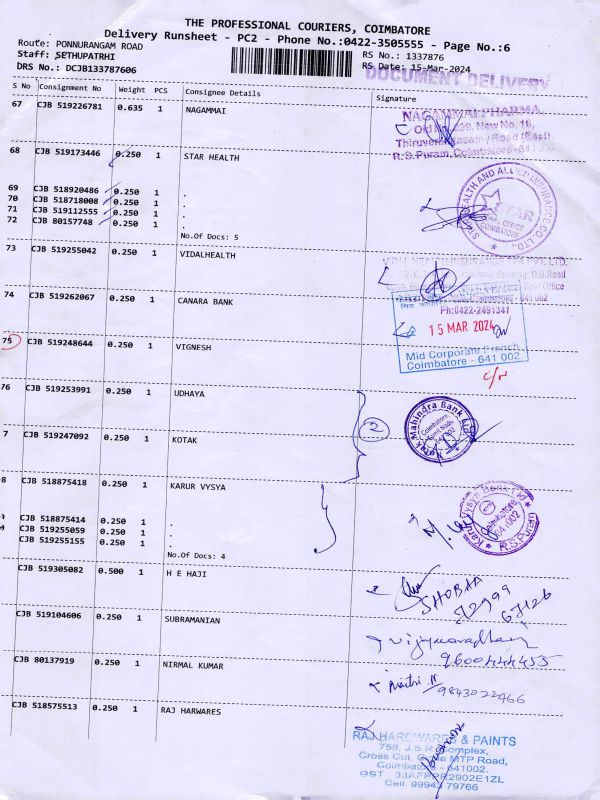 THE PROFESSIONAL COURIERS, COIMBATORE
Delivery Runsheet - PC2 - Phone No.:0422-3505555 - Page No.:6
Route: PONNURANGAM ROAD
RS No.: 1337876
Staff: SETHUPATRHI
RS Date: 15-Mar-2024
DRS No.: DCJB133787606
DOCUMENT DELIVERY
S No Consignment No Weight PCS Consignee Details Signature
67 CJB 519226781 0.635 1 NAGAMMAI
NAGAMMAI PHARMA
Old No.239, New No.16,
R.S.Puram, Coimbatore- 641 002
68 CJB 519173446 0.250 1 STAR HEALTH
STAR HEALTH AND ALLIED INSURANCE CO. LTD.
STAR
OFFICE
COIMBATORE
69 CJB 518920486 0.250 1 .
70 CJB 518718008 0.250 1 .
71 CJB 519112555 0.250 1 .
72 CJB 80157748 0.250 1 .
No.Of Docs: 5
73 CJB 519255042 0.250 1 VIDALHEALTH
74 CJB 519262067 0.250 1 CANARA BANK
Ph:0422-2491341
15 MAR 2024
Mid Corporate Branch
Coimbatore - 641 002
75 CJB 519248644 0.250 1 VIGNESH
76 CJB 519253991 0.250 1 UDHAYA
2
Kotak Mahindra Bank Ltd
Coimbatore
7 CJB 519247092 0.250 1 KOTAK
8 CJB 518875418 0.250 1 KARUR VYSYA
Karur Vysya Bank Ltd
Coimbatore
641 002
R.S.Puram
CJB 518875414 0.250 1 .
CJB 519255059 0.250 1 .
CJB 519255155 0.250 1 .
No.Of Docs: 4
CJB 519305082 0.500 1 H E HAJI
SHOBAA
CJB 519104606 0.250 1 SUBRAMANIAN
9600444455
CJB 80137919 0.250 1 NIRMAL KUMAR
9843022466
CJB 518575513 0.250 1 RAJ HARWARES
RAJ HARDWARES & PAINTS
758, J.S.R Complex,
Cross Cut, MTP Road,
Coimbatore - 641002.
Cell. 99943 79766